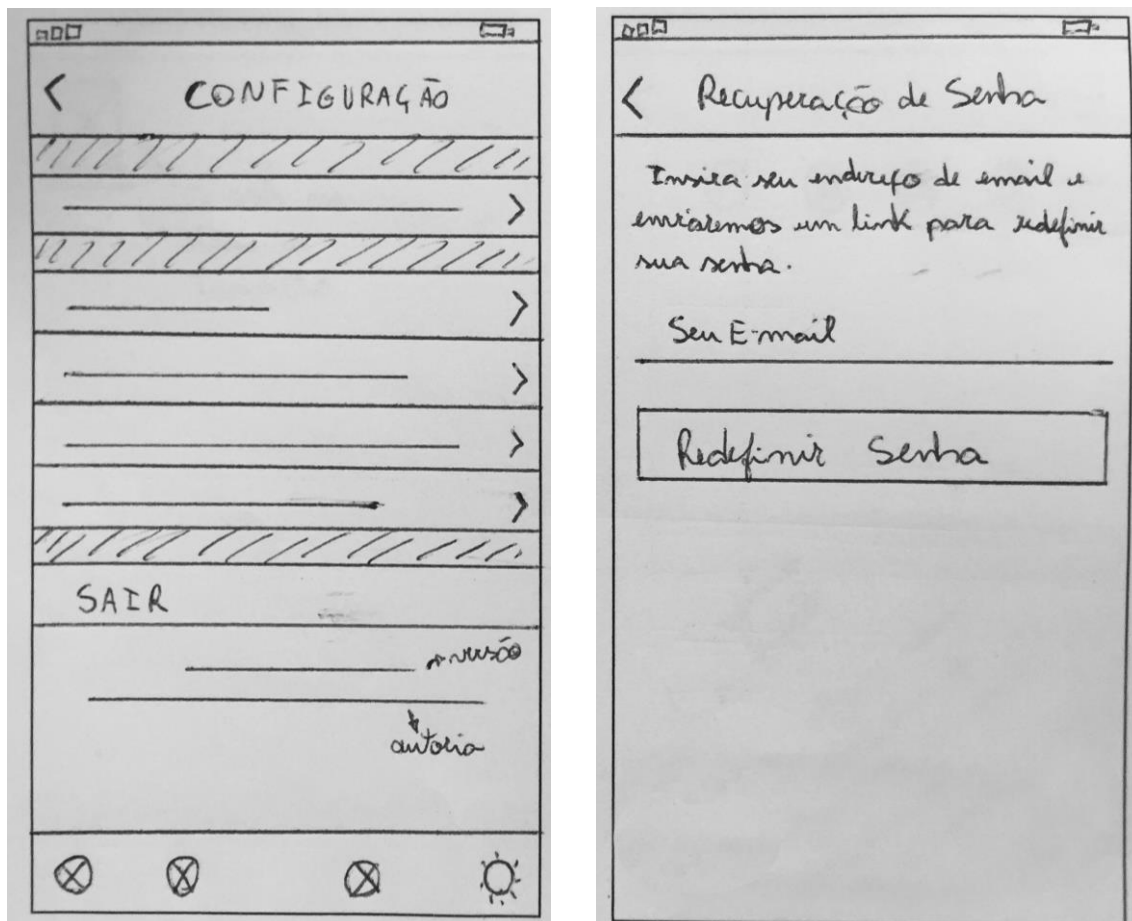 CONFIGURAÇÃO
SAIR
versão
autoria
Recuperação de Senha
Insira seu endereço de email e
enviaremos um link para redefinir
sua senha.
Seu E-mail
Redefinir Senha